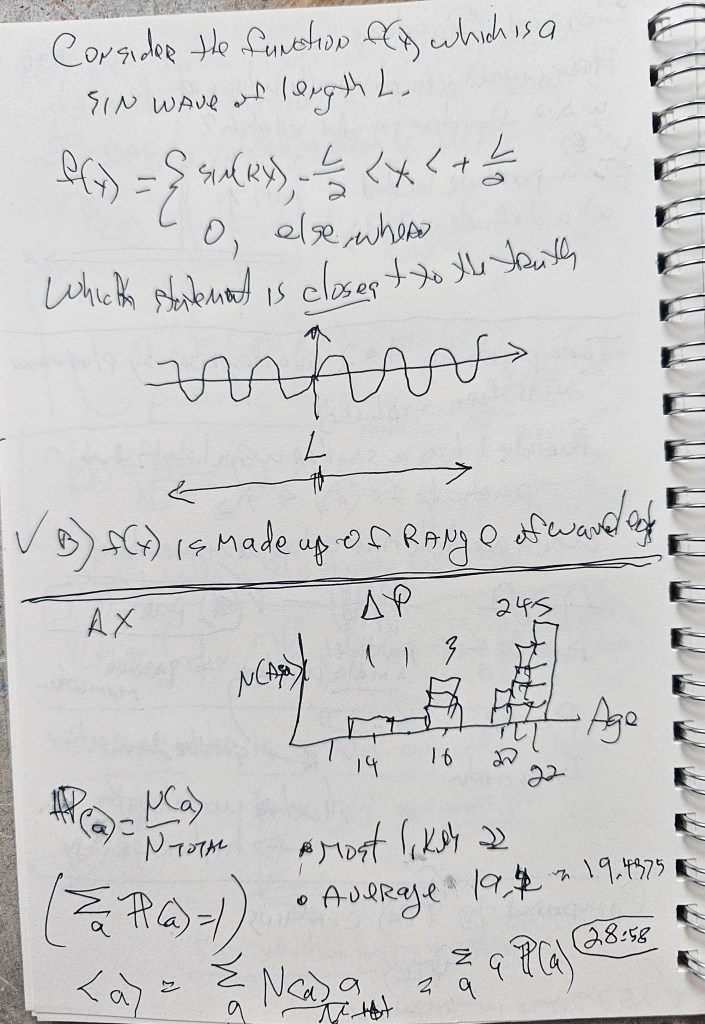 Consider the function f(x) which is a
SIN WAVE of length L.
f(x) = { sin(kx), -L/2 < x < + L/2
0, else where
Which statement is closest to the truth
L
√ B) f(x) is made up of RANGE of
ΔX ΔP
1 1 3 2 4 5
N(Age)
14 16 20 22 Age
P(a) = N(a)/N TOTAL
• MOST likely 22
• AVERAGE 19.4375
(Σa P(a) = 1)
<a> = Σa N(a) a = Σa a P(a) 28:58